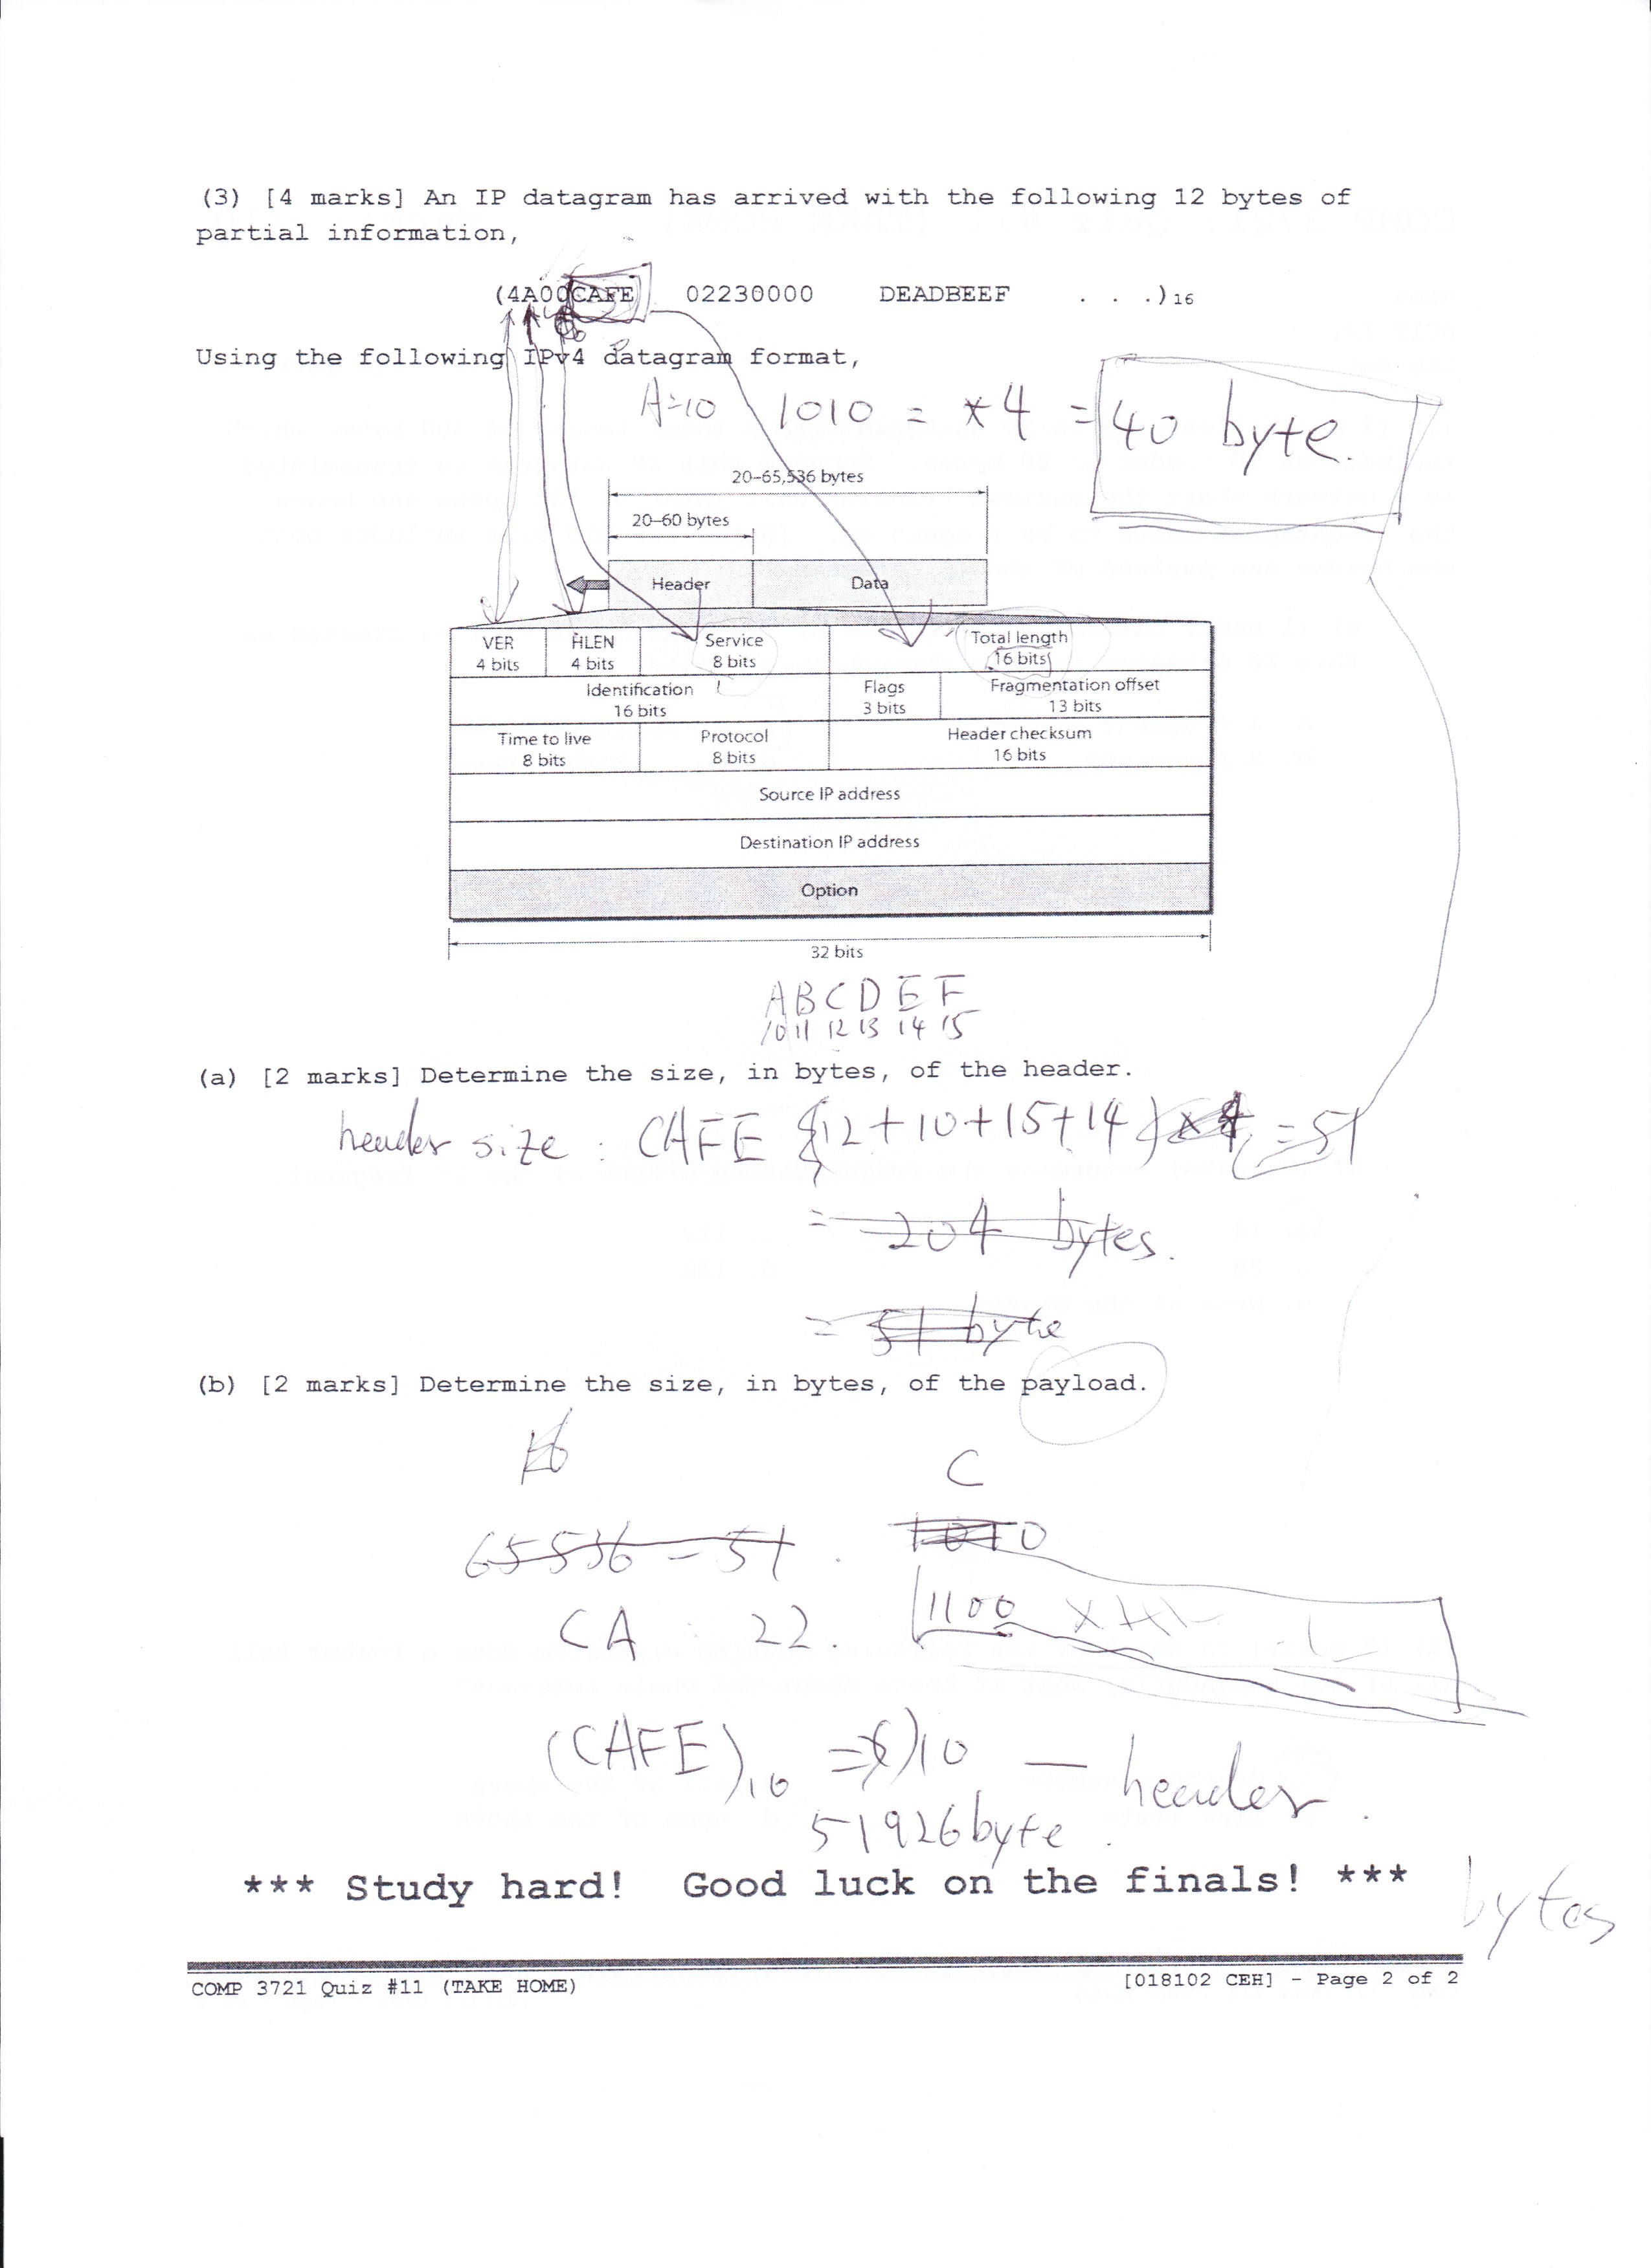 (3) [4 marks] An IP datagram has arrived with the following 12 bytes of
partial information,
(4A00CAFE 02230000 DEADBEEF . . .)16
Using the following IPv4 datagram format,
A=10 1010 = *4 = 40 byte.
20–65,536 bytes
20–60 bytes
Header Data
VER HLEN Service Total length
4 bits 4 bits 8 bits 16 bits
Identification Flags Fragmentation offset
16 bits 3 bits 13 bits
Time to live Protocol Header checksum
8 bits 8 bits 16 bits
Source IP address
Destination IP address
Option
32 bits
A B C D E F
10 11 12 13 14 15
(a) [2 marks] Determine the size, in bytes, of the header.
header size : CAFE (12+10+15+14) x4 = 51
= 204 bytes.
= 51 byte
(b) [2 marks] Determine the size, in bytes, of the payload.
C
65536 - 51 . 1010
CA : 22. 1100
(CAFE)16 = ( )10 — header.
51926 byte.
*** Study hard! Good luck on the finals! ***
bytes
COMP 3721 Quiz #11 (TAKE HOME) [018102 CEH] - Page 2 of 2